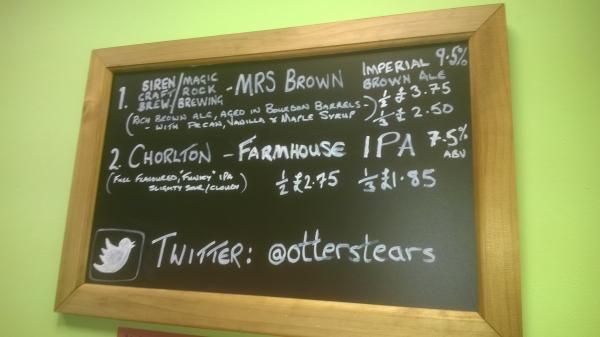 1. SIREN/MAGIC
CRAFT/ROCK
BREW/BREWING - MRS BROWN IMPERIAL 9.5%
BROWN ALE
(RICH BROWN ALE, AGED IN BOURBON BARRELS - ) 1/2 £3.75
- WITH PECAN, VANILLA & MAPLE SYRUP 1/3 £2.50
2. CHORLTON - FARMHOUSE IPA 7.5%
ABV
(FULL FLAVOURED, "FUNKY" IPA
SLIGHTY SOUR/CLOUDY) 1/2 £2.75 1/3 £1.85
TWITTER: @otterstears